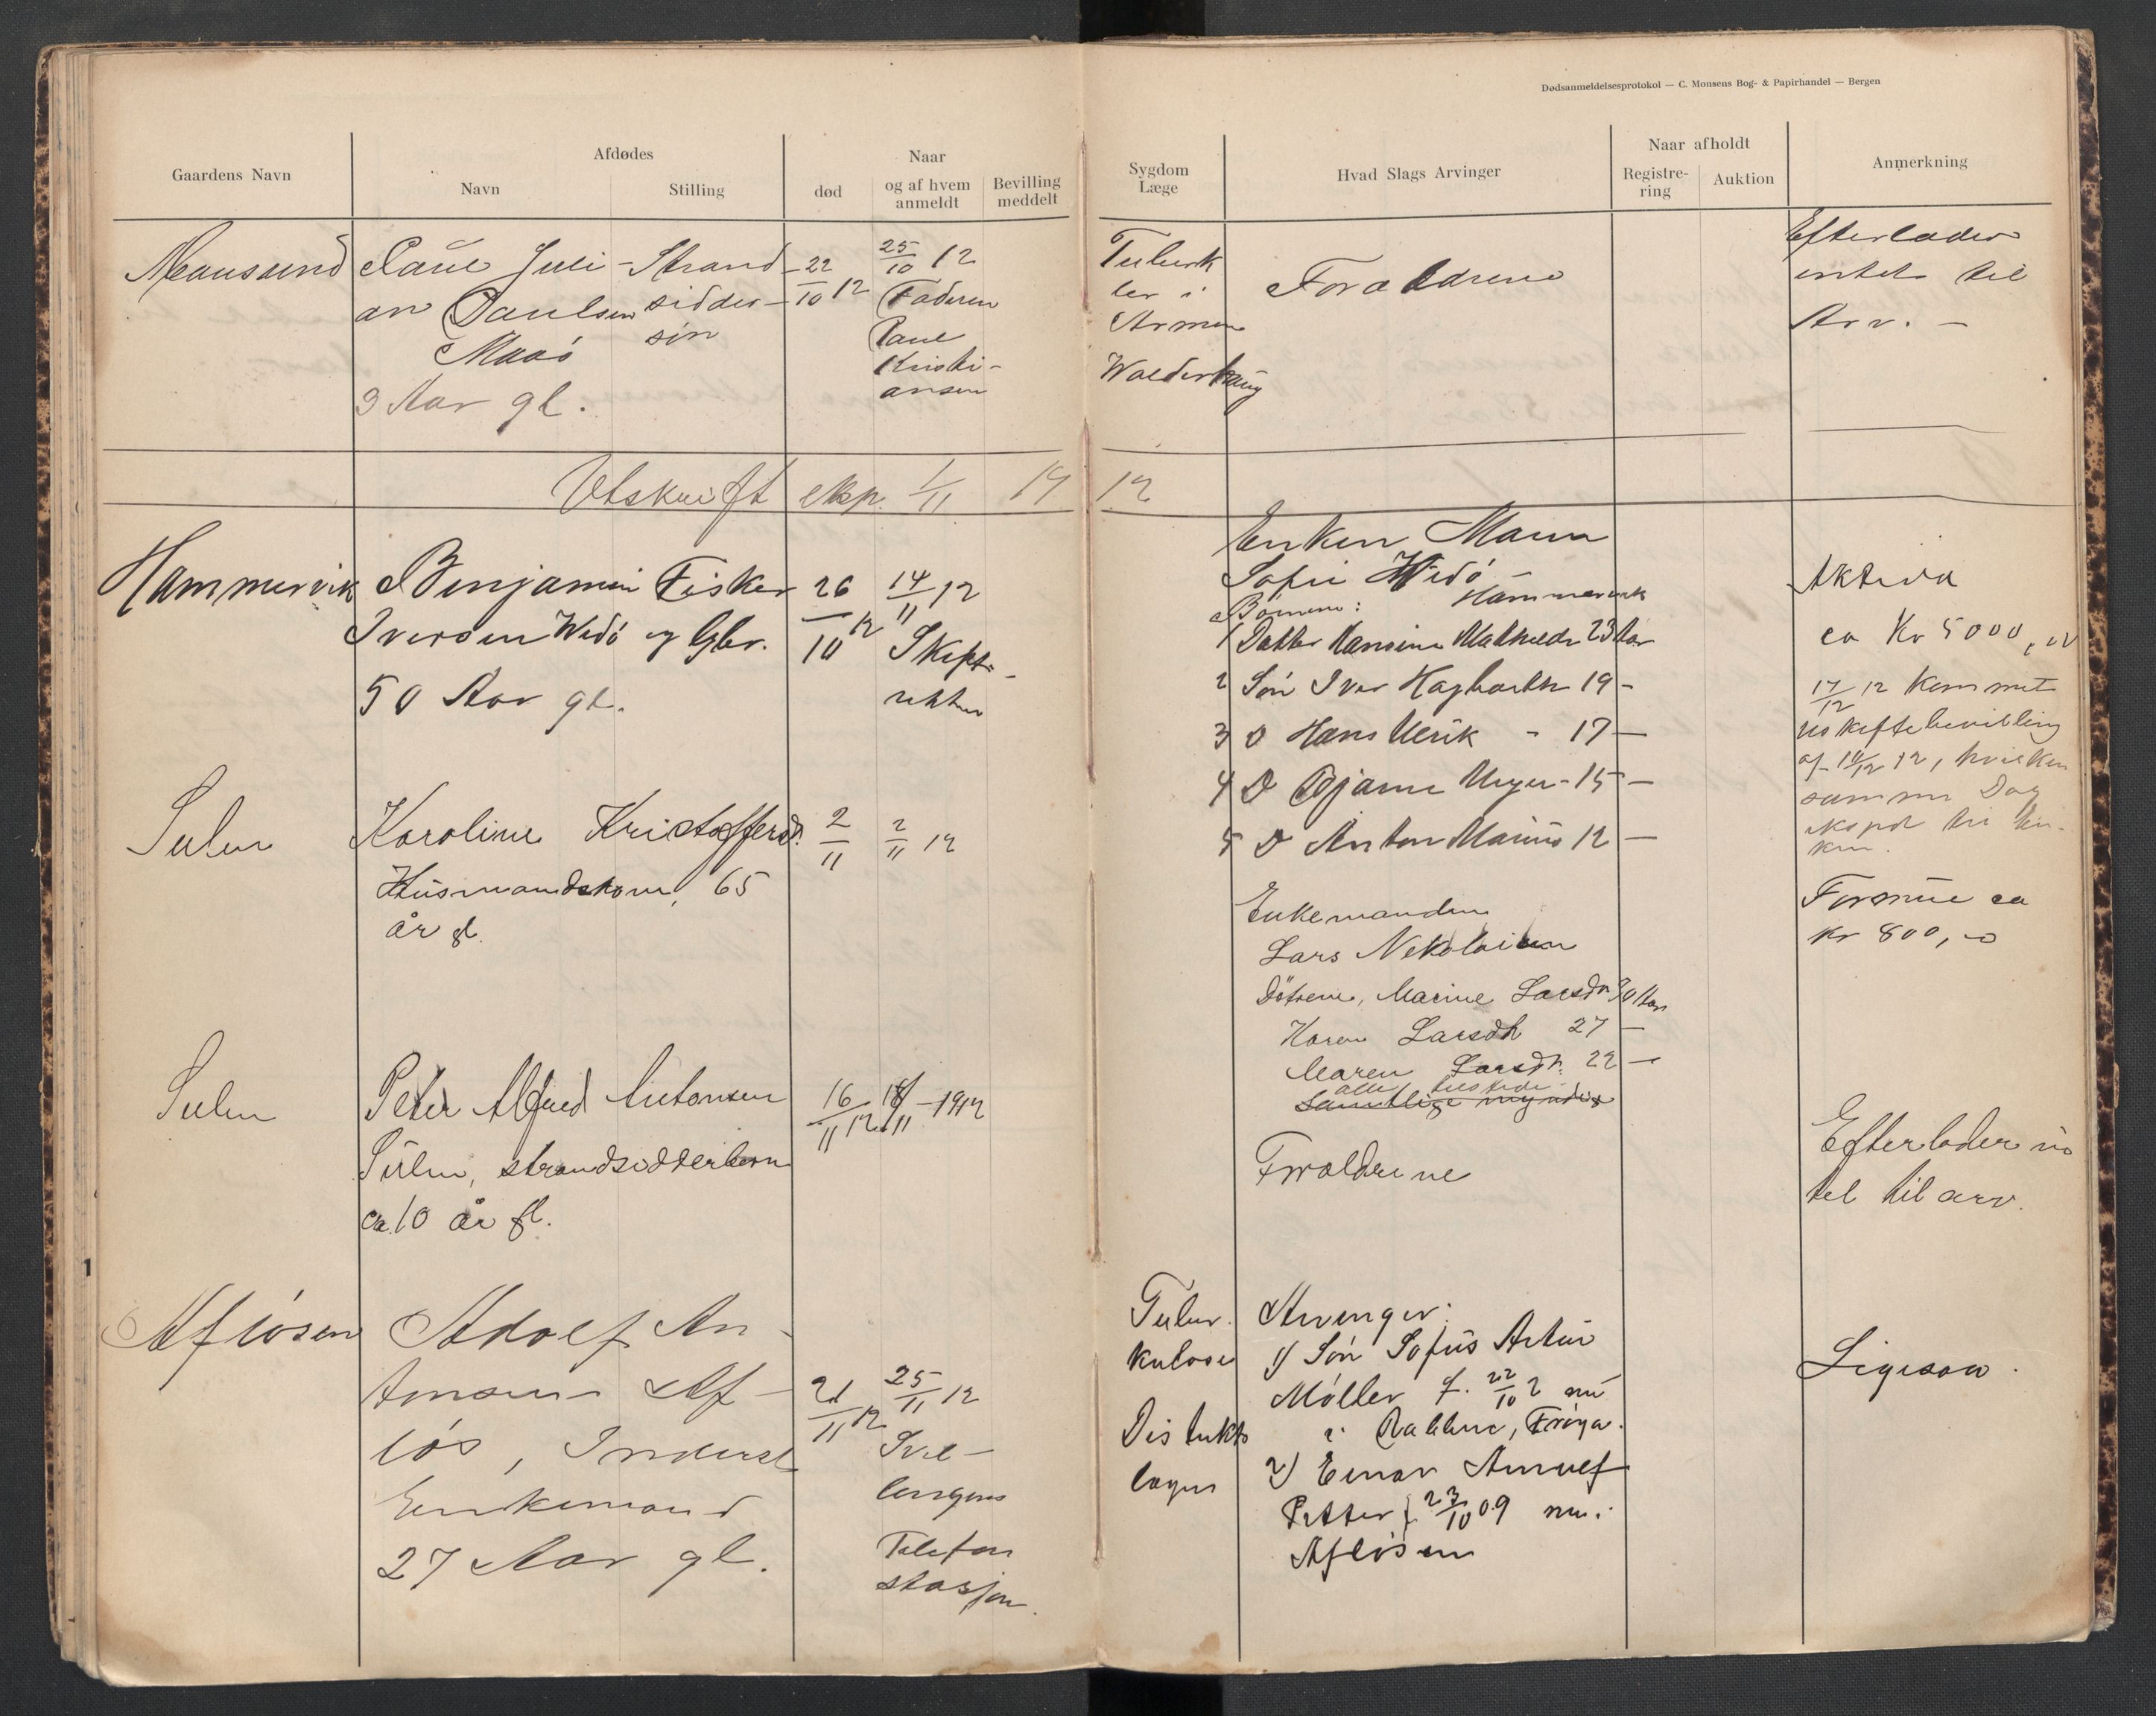 Dødsanmeldelsesprotokol — C. Monsens Bog- & Papirhandel — Bergen
Gaardens Navn
Afdødes
Navn
Stilling
Naar
død
og af hvem
anmeldt
Bevilling
meddelt
Sygdom
Læge
Hvad Slags Arvinger
Naar afholdt
Registre-
ring
Auktion
Anmerkning
Mausund
Paul Juli-
an Paulsen
Maaö
3 Aar gl.
Strand-
sidder-
sön
22/10 12
25/10 12
Faderen
Paul
Kristi-
ansen
Tuberk
ler i
Armen
Walderhaug
Forældrene
Efterlader
intet til
Arv. —
Utskrift eksp. 1/11 1912
Hammervik
Benjamin Fisker
Iversen Wedö og Gbr.
50 Aar gl.
26/10 12
14/11 12
Skifte-
retten
Enken Maren
Sofie Wedö
Hammervik
Börnene:
1 Datter Hansine Mathilde 23 Aar
2 Sön Iver Hagbarth 19 -
3 D Hans Ulrik - 17 —
4 D Bjarne Meyer - 15 —
5 D Anton Marius 12 —
Aktiva
ca Kr 5000,00
17/12 12 kommet
uskiftebevilling
af 14/12 12, hvilken
samme Dag
eksped til En-
ken.
Sulen
Karoline Kristoffersd.
Husmandskone, 65
år gl.
2/11
2/11 12
Enkemanden
Lars Nekolaisen
Døtrene, Marine Larsdr 30 Aar
Karen Larsdtr 27 —
Maren Larsdr. 22 —
alle tilstede
Samtlige myndige
Formue ca
kr 800,00
Sulen
Peter Alfred Antonsen
Sulen, strandsidderbarn
ca. 10 år gl.
16/11 12
18/11 - 1912
Forældrene
Efterlader in
tet til arv.
Aflösen
Adolf An-
tonsen Af-
lös, Inderst
Enkemand
27 Aar gl.
21/11 12
25/11 12
Svel-
lingens
Telefon
stasjon.
Tuber
kulose
Distrikts
lægen
Arvinger:
1) Sön Sofus Artur
Möller f. 22/10 2 nu
i Rabben, Fröya.
2) Einar Arnulf
Petter f 23/10 09 nu i
Aflösen
Ligesaa.